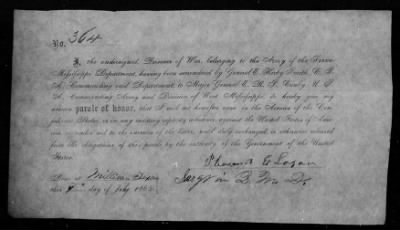 No. 364
I, the undersigned, Prisoner of War, belonging to the Army of the Trans-
Mississippi Department, having been surrendered by General E. Kirby Smith, C. S.
A., Commanding said Department, to Major General E. R. S. Canby, U. S.
A., Commanding Army and Division of West Mississippi, do hereby give my
solemn parole of honor, that I will not hereafter serve in the Armies of the Con-
federate States, or in any military capacity whatever, against the United States of Ame-
rica, or render aid to the enemies of the latter, until duly exchanged, or otherwise released
from the obligations of this parole by the authority of the Government of the United
States.
Thomas E Logan
Done at Millican Texas
this day of July 1865